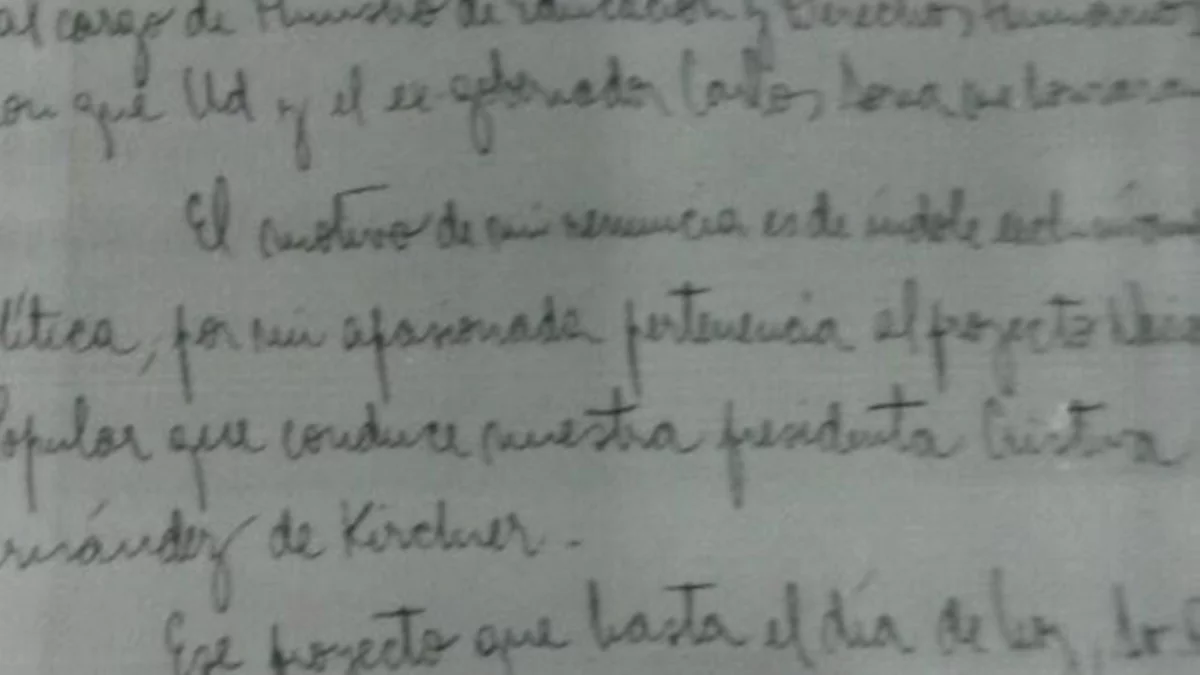 al cargo de Ministro de Educación y Derechos Humanos
que Ud y el ex gobernador Carlos
El motivo de mi renuncia es de índole
lítica, por mi apasionada pertenencia al proyecto
opular que conduce nuestra presidenta Cristina
rnández de Kirchner.
Ese proyecto que hasta el día de hoy,